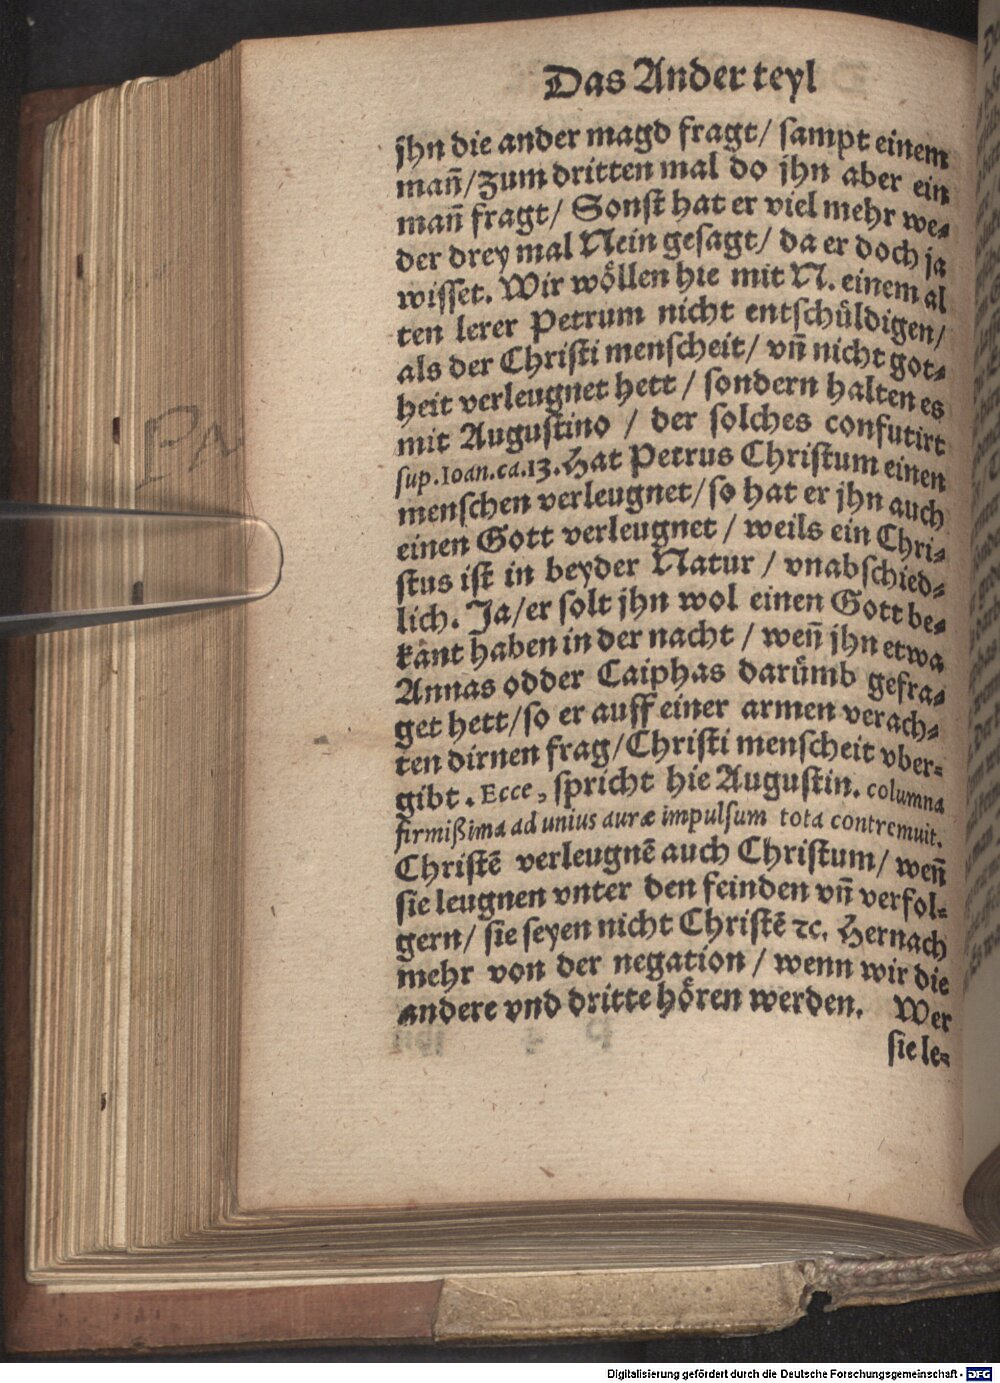 Das Ander teyl
jhn die ander magd fragt/ sampt einem
mañ/zum dritten mal do jhn aber ein
mañ fragt/ Sonst hat er viel mehr we⸗
der drey mal Nein gesagt/ da er doch ja
wisset. Wir wöllen hie mit N. einem al
ten lerer Petrum nicht entschüldigen/
als der Christi menscheit/ vñ nicht got⸗
heit verleugnet hett/ sondern halten es
mit Augustino / der solches confutirt
sup. Ioan. ca. 13. Hat Petrus Christum einen
menschen verleugnet/so hat er jhn auch
einen Gott verleugnet / weils ein Chri⸗
stus ist in beyder Natur / vnabschied⸗
lich. Ja/er solt jhn wol einen Gott be⸗
kant haben in der nacht / weñ jhn etwa
Annas odder Caiphas darümb gefra⸗
get hett/so er auff einer armen verach⸗
ten dirnen frag/Christi menscheit vber⸗
gibt. Ecce, spricht hie Augustin. columna
firmißima ad unius auræ impulsum tota contremuit.
Christē verleugnē auch Christum/ weñ
sie leugnen vnter den feinden vñ verfol⸗
gern/ sie seyen nicht Christē ⁊c. Hernach
mehr von der negation / wenn wir die
andere vnd dritte hören werden. Wer
sie le⸗
PN
Digitalisierung gefördert durch die Deutsche Forschungsgemeinschaft - DFG